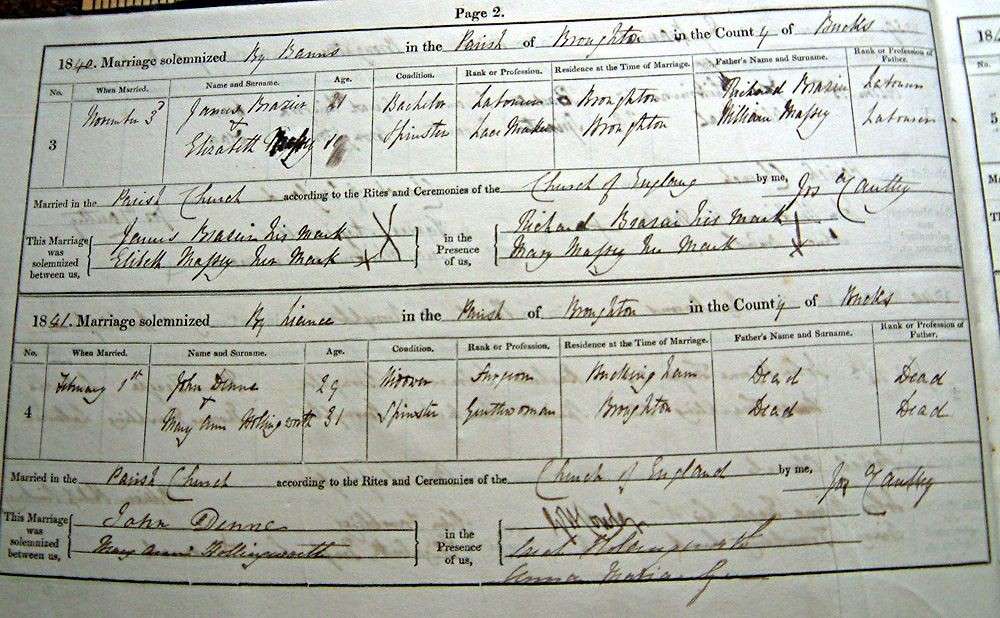 Page 2.
1840. Marriage solemnized By Banns in the Parish of Broughton in the County of Bucks
No. When Married. Name and Surname. Age. Condition. Rank or Profession. Residence at the Time of Marriage. Father's Name and Surname. Rank or Profession of Father.
3 November 3 James Brazier 21 Bachelor Labourer Broughton Richard Brazier Labourer
+
Elizabeth Massey 19 Spinster Lace Maker Broughton William Massey Labourer
Married in the Parish Church according to the Rites and Ceremonies of the Church of England by me, Jos
This Marriage was solemnized between us, James Brazier his mark X in the Presence of us, Richard Brazier his mark
Elibeth Massey her mark X Mary Massey her mark X
1841. Marriage solemnized By Licence in the Parish of Broughton in the County of Bucks
No. When Married. Name and Surname. Age. Condition. Rank or Profession. Residence at the Time of Marriage. Father's Name and Surname. Rank or Profession of Father.
4 February 1st John Denne 29 Widower Surgeon Buckingham Dead Dead
+
Mary Ann Hollingworth 31 Spinster Gentlewoman Broughton Dead Dead
Married in the Parish Church according to the Rites and Ceremonies of the Church of England by me, Jos
This Marriage was solemnized between us, John Denne in the Presence of us,
Mary Ann Hollingworth
Anna Maria
184
No.
5